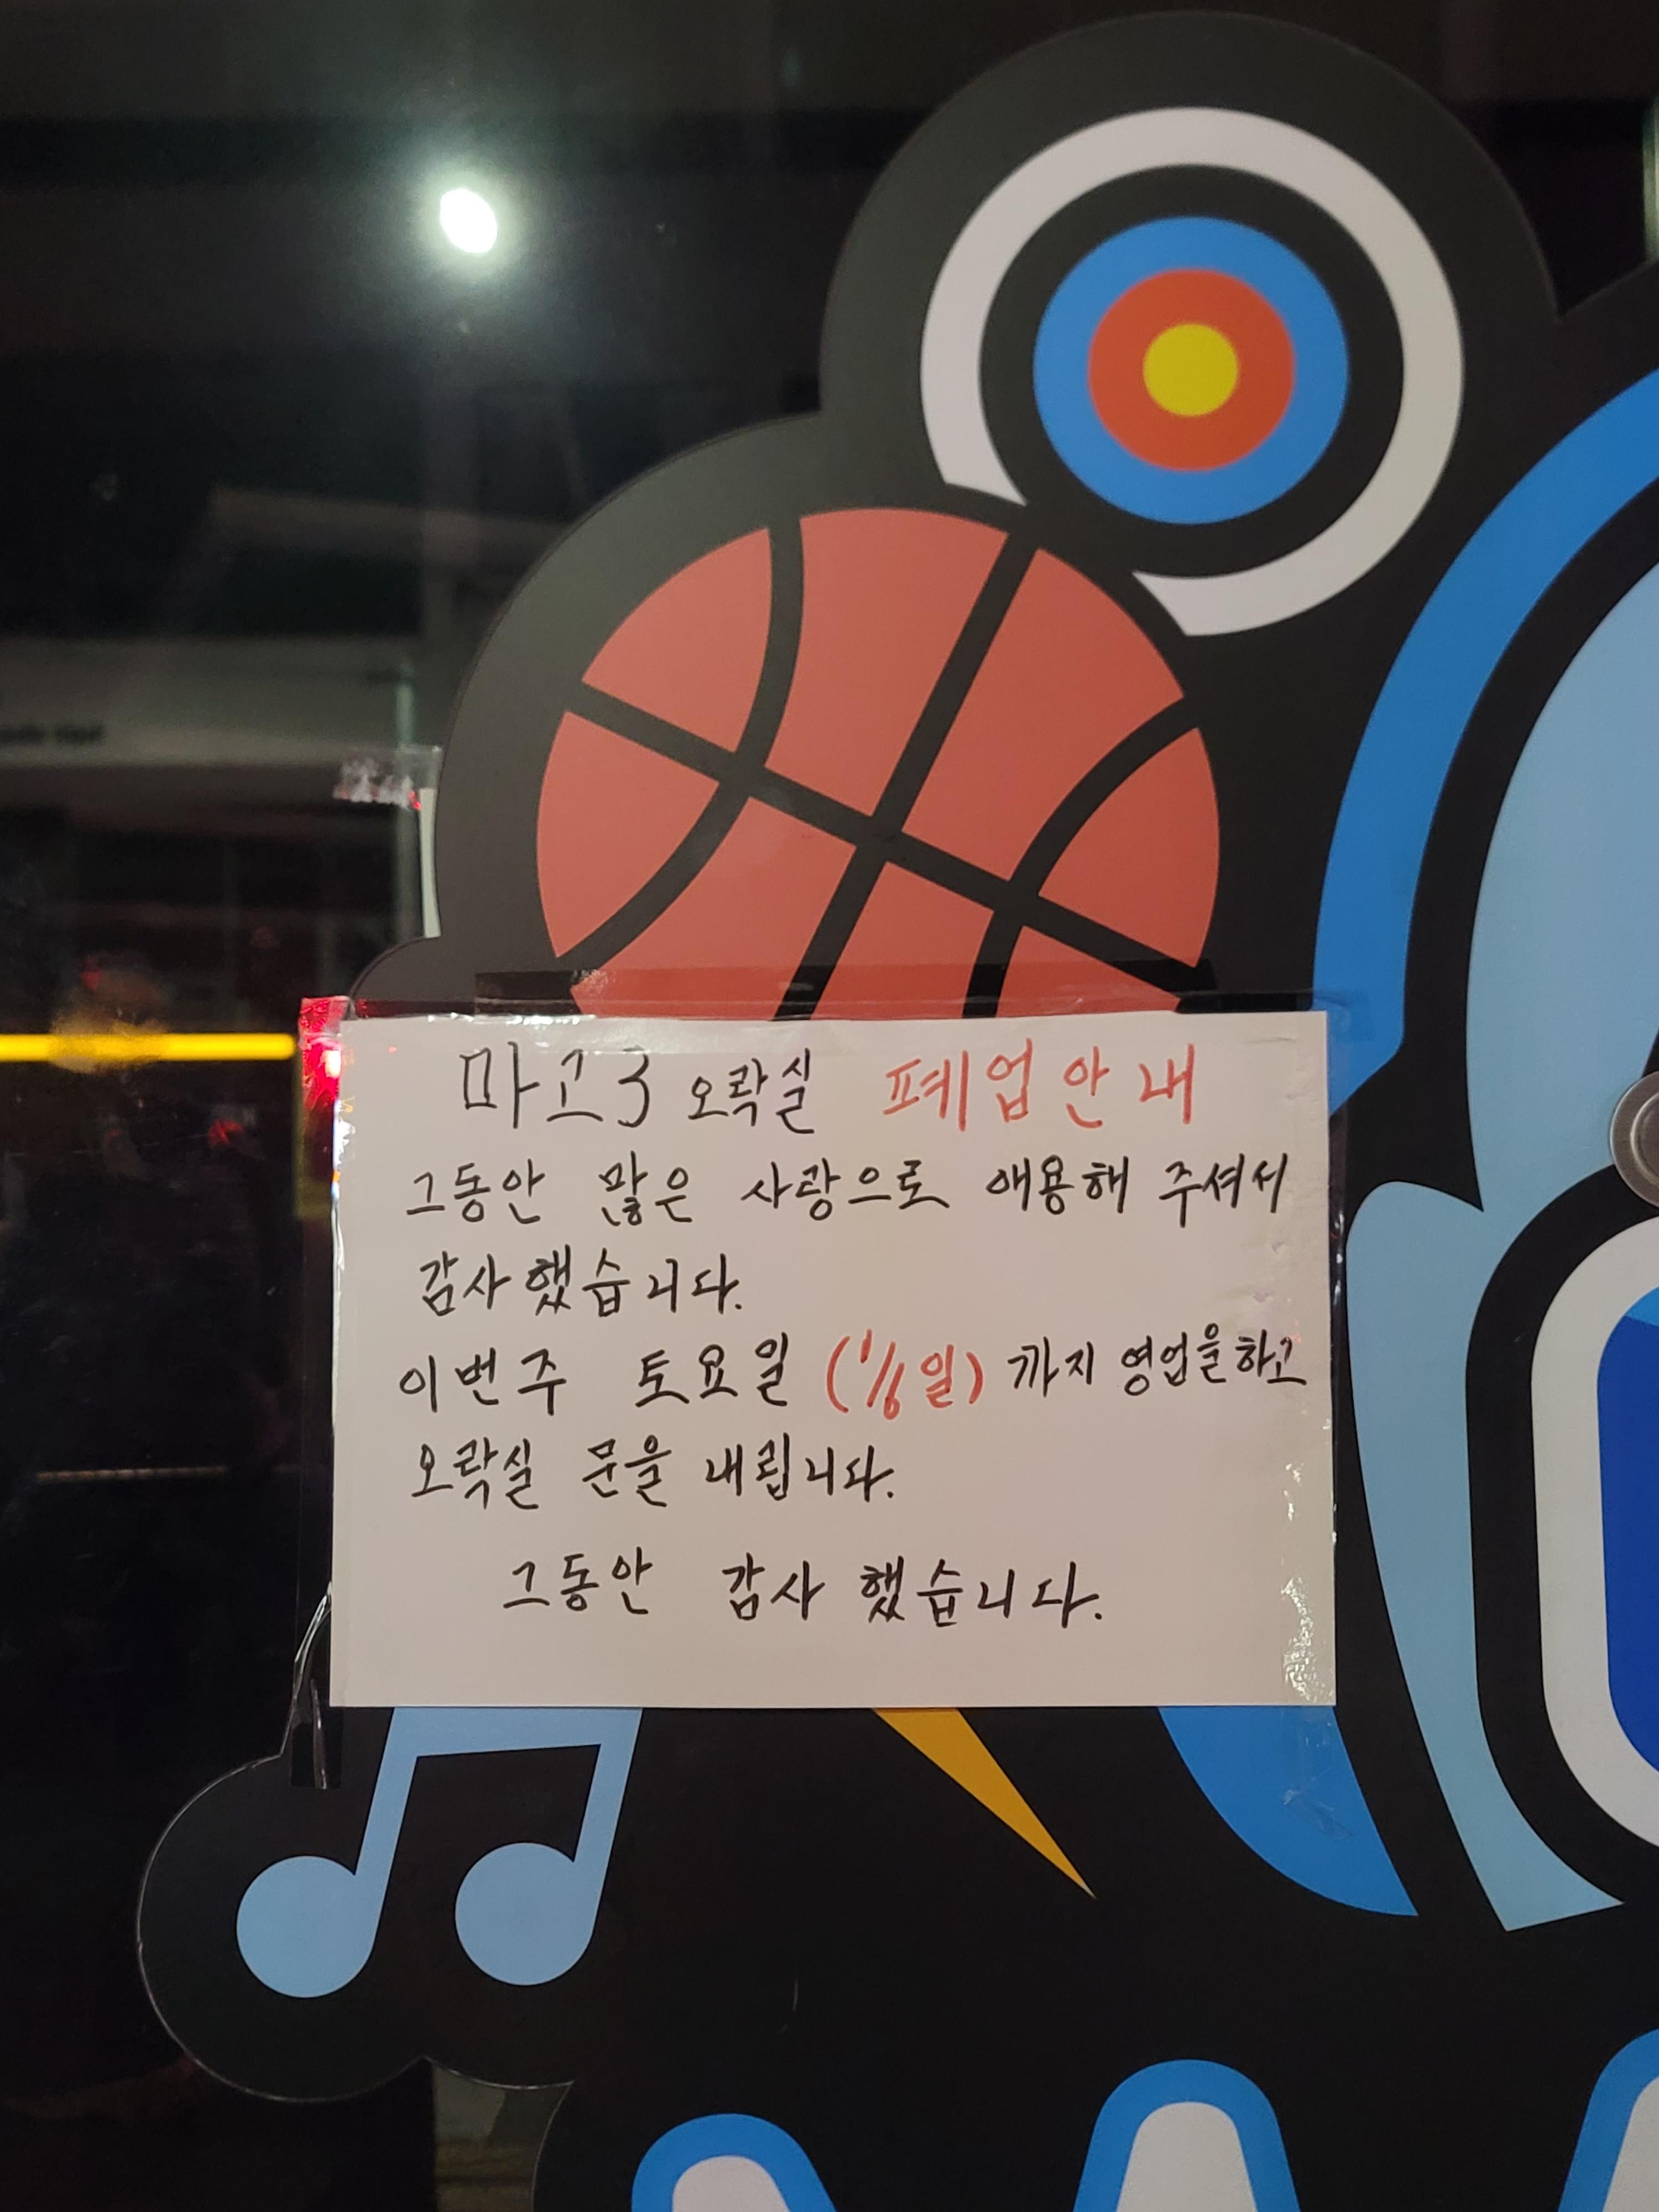 마고3 오락실 폐업안내
그동안 많은 사랑으로 애용해 주셔서
감사했습니다.
이번주 토요일 (1/6일) 까지 영업을하고
오락실 문을 내립니다.
그동안 감사 했습니다.